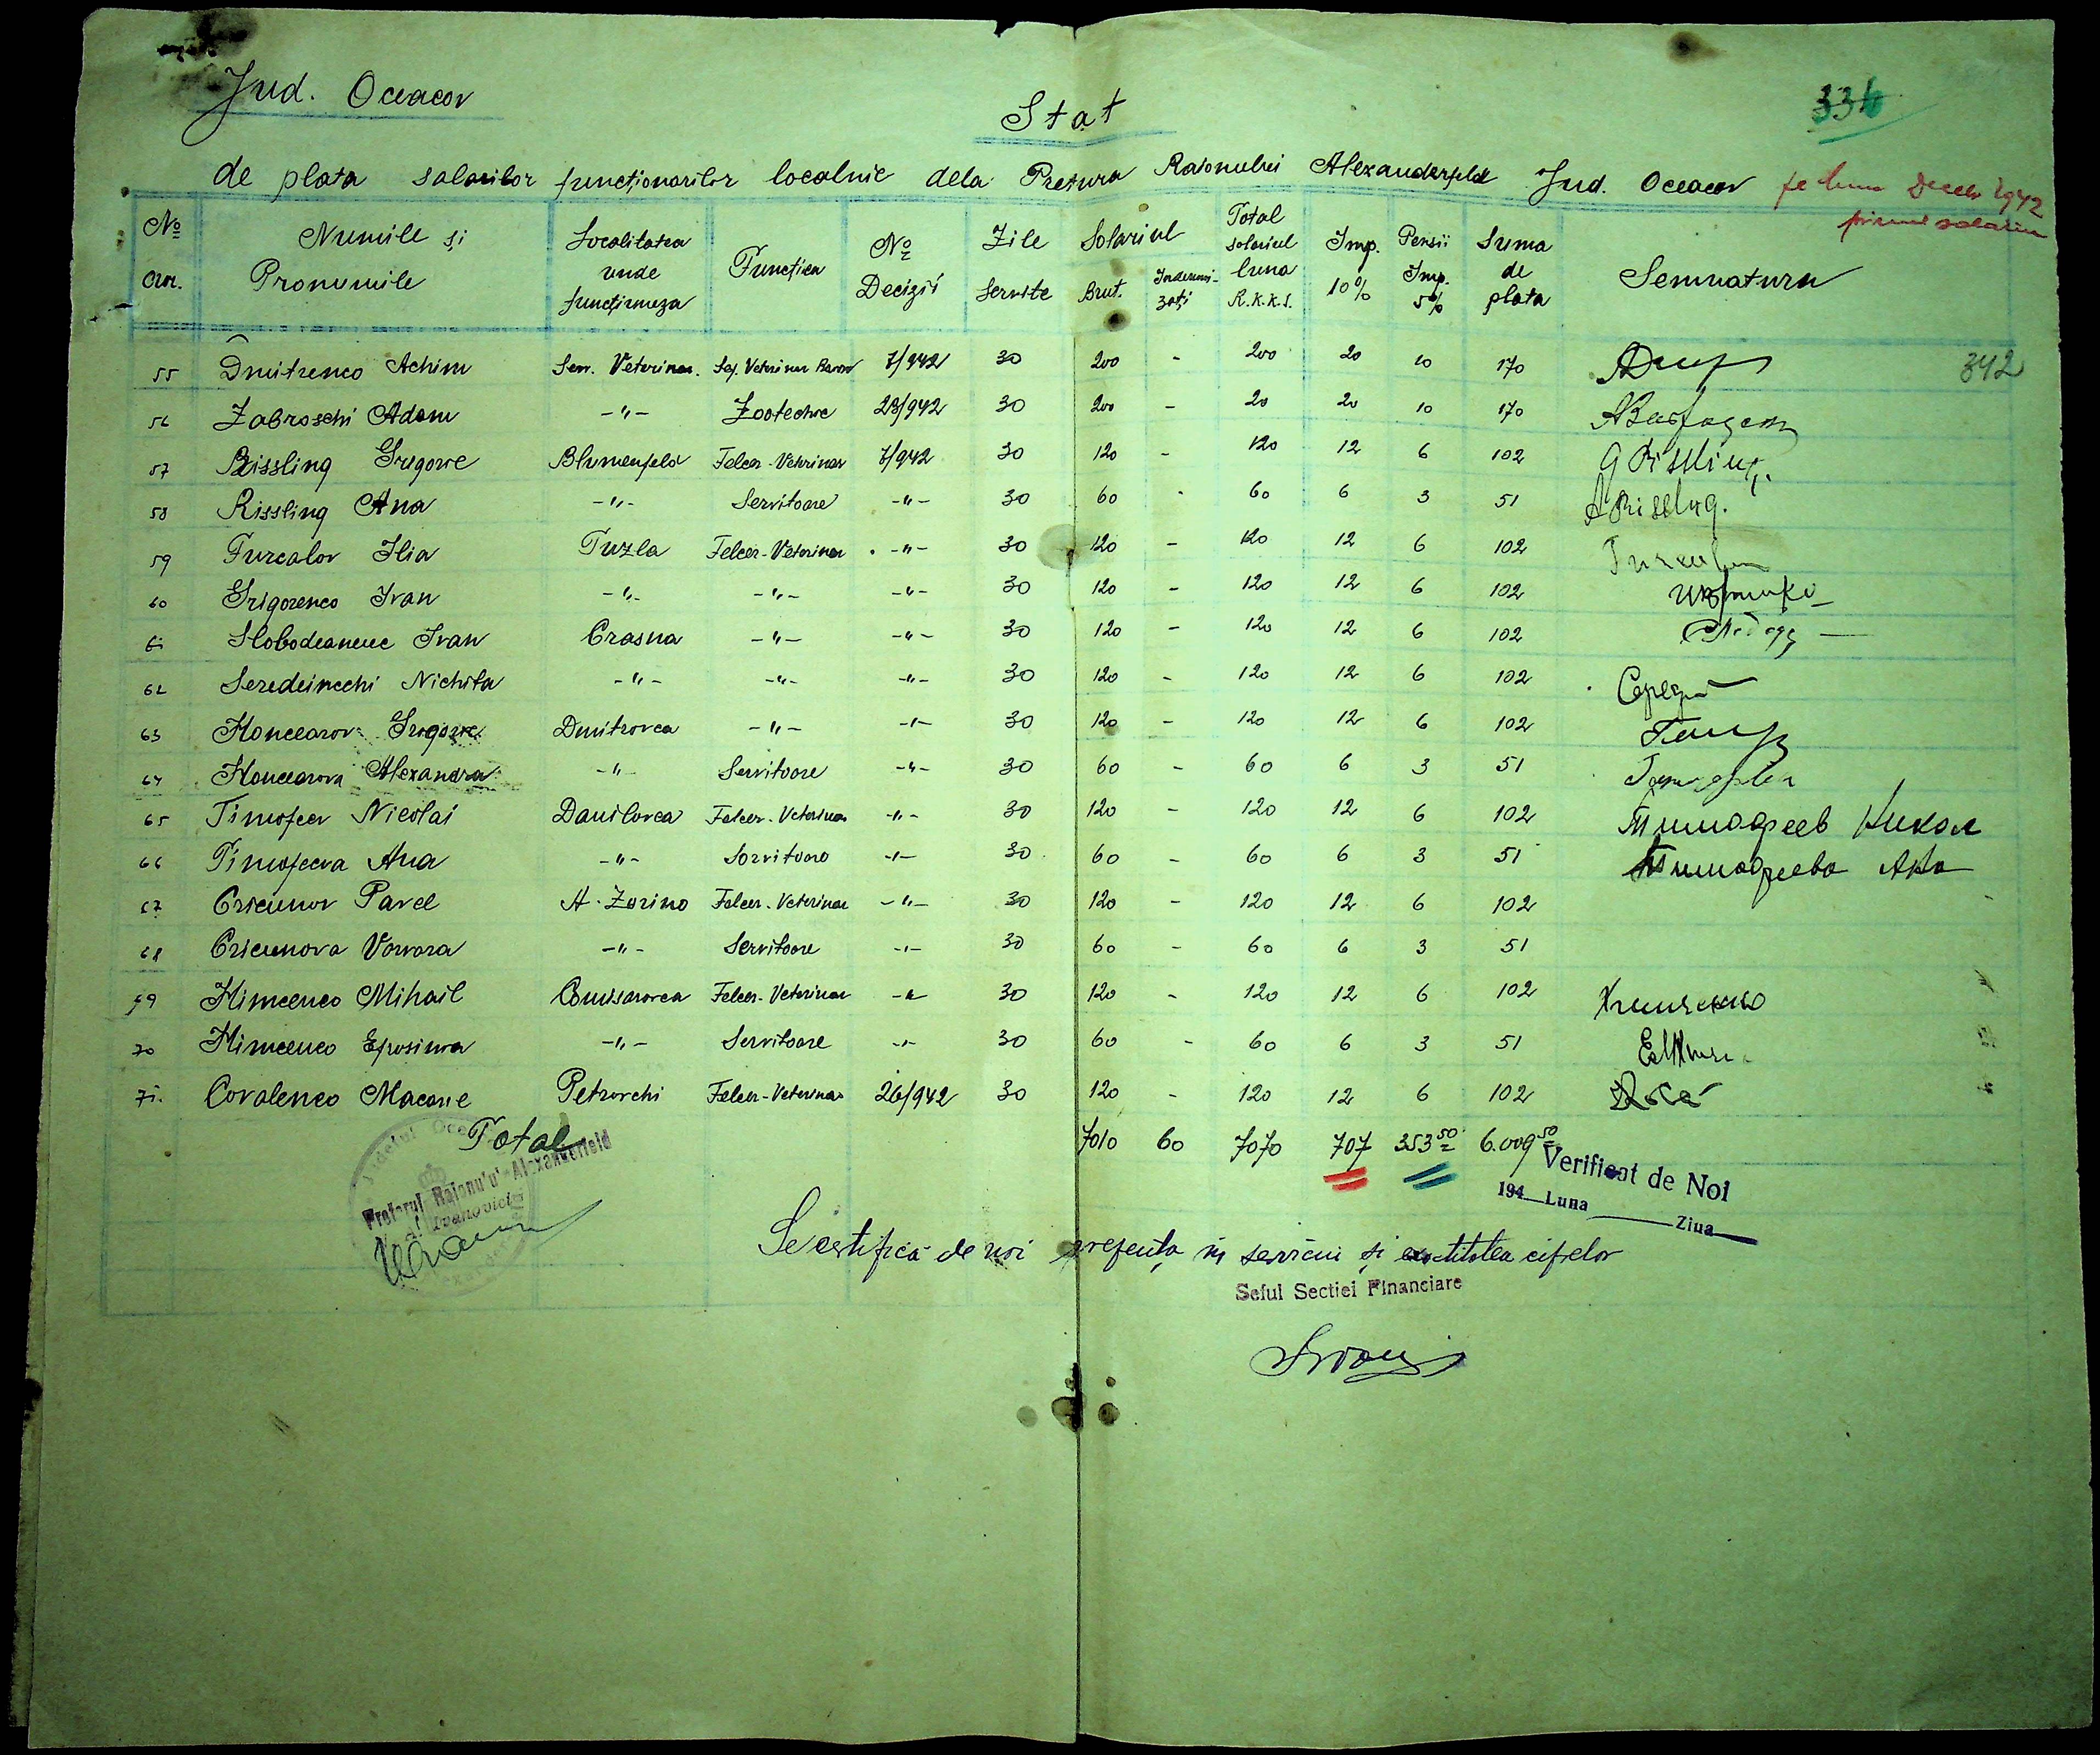 Jud. Oceacov
Stat
334
de plata salariilor funcționarilor localnic dela Pretura Raionului Alexanderfeld Jud. Oceacov pe luna Decem 1942
primind salariu
№ Numile și Localitatea Funcția № Zile Salariul Total Imp. Pensii Suma Semnatura
Crr. Pronumile unde Decizii Servite Brut. Indemni- solariul 10% Imp. de
funcținneza zoți luna 5% plata
R.K.K.S.
55 Dmitrenco Achim Serv. Veterinar. Sef. Veterinar Raion 7/942 30 200 - 200 20 10 170 342
56 Zabroschi Adam -"- Zootechnic 23/942 30 200 - 20 20 10 170
57 Rissling Grigorie Blumenfeld Felcer-Veterinar 7/942 30 120 - 120 12 6 102 G Rissling.
58 Rissling Ana -"- Servitoare -"- 30 60 - 60 6 3 51 A Rissling.
59 Turcalov Ilia Tuzla Felcer-Veterinar -"- 30 120 - 120 12 6 102
60 Grigorenco Ivan -"- -"- -"- 30 120 - 120 12 6 102
61 Slobodeaneuc Ivan Crasna -"- -"- 30 120 - 120 12 6 102
62 Seredeinschi Nichita -"- -"- -"- 30 120 - 120 12 6 102
63 Honcearov Grigorie Dmitrovca -"- -"- 30 120 - 120 12 6 102
64 Honcearova Alexandra -"- Servitoare -"- 30 60 - 60 6 3 51
65 Timofeev Nicolai Danilovca Felcer-Veterinar -"- 30 120 - 120 12 6 102 Тимофеев Никол
66 Timofeeva Ana -"- Servitoare -"- 30 60 - 60 6 3 51 Тимофеева Ана
67 Cricunov Pavel A. Zarino Felcer-Veterinar -"- 30 120 - 120 12 6 102
68 Cricunova Varvara -"- Servitoare -"- 30 60 - 60 6 3 51
69 Himcenco Mihail Comisarovca Felcer-Veterinar -"- 30 120 - 120 12 6 102 Химченко
70 Himcenco Efrosinia -"- Servitoare -"- 30 60 - 60 6 3 51
71. Covalenco Macarie Petrovchi Felcer-Veterinar 26/942 30 120 - 120 12 6 102
Total 7010 60 7070 707 353 50 6.009 50
Pretorul Raionului Alexanderfeld
Ivanovici
Verificat de Noi
194 Luna Ziua
Se certifică de noi prezența în serviciu și exactitatea cifrelor
Seful Sectiei Financiare